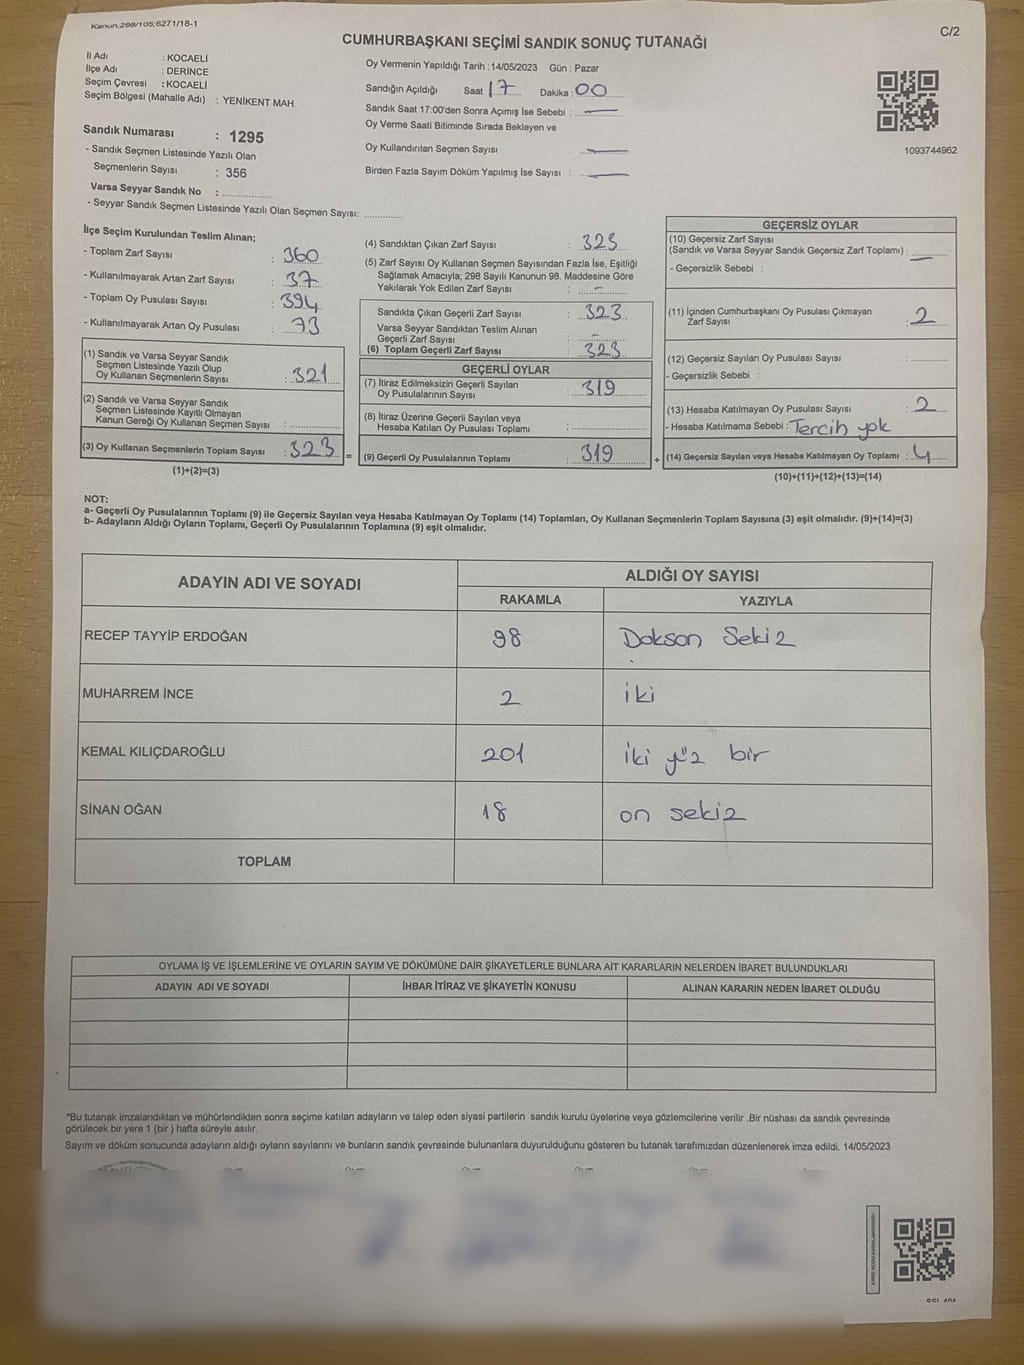 Kanun,298/105,6271/18-1
C/2
CUMHURBAŞKANI SEÇİMİ SANDIK SONUÇ TUTANAĞI
İl Adı : KOCAELİ
İlçe Adı : DERİNCE
Seçim Çevresi : KOCAELİ
Seçim Bölgesi (Mahalle Adı) : YENİKENT MAH.
Sandık Numarası : 1295
- Sandık Seçmen Listesinde Yazılı Olan
Seçmenlerin Sayısı : 356
Varsa Seyyar Sandık No :
- Seyyar Sandık Seçmen Listesinde Yazılı Olan Seçmen Sayısı:
Oy Vermenin Yapıldığı Tarih :14/05/2023 Gün : Pazar
Sandığın Açıldığı Saat 17 Dakika : 00
Sandık Saat 17:00'den Sonra Açımış İse Sebebi : —
Oy Verme Saati Bitiminde Sırada Bekleyen ve
Oy Kullandırılan Seçmen Sayısı : —
Birden Fazla Sayım Döküm Yapılmış İse Sayısı : —
1093744962
İlçe Seçim Kurulundan Teslim Alınan;
- Toplam Zarf Sayısı : 360
- Kullanılmayarak Artan Zarf Sayısı : 37
- Toplam Oy Pusulası Sayısı : 394
- Kullanılmayarak Artan Oy Pusulası : 73
(1) Sandık ve Varsa Seyyar Sandık
Seçmen Listesinde Yazılı Olup
Oy Kullanan Seçmenlerin Sayısı : 321
(2) Sandık ve Varsa Seyyar Sandık
Seçmen Listesinde Kayıtlı Olmayan
Kanun Gereği Oy Kullanan Seçmen Sayısı :
(3) Oy Kullanan Seçmenlerin Toplam Sayısı : 323 =
(1)+(2)=(3)
(4) Sandıktan Çıkan Zarf Sayısı : 323
(5) Zarf Sayısı Oy Kullanan Seçmen Sayısından Fazla İse, Eşitliği
Sağlamak Amacıyla; 298 Sayılı Kanunun 98. Maddesine Göre
Yakılarak Yok Edilen Zarf Sayısı : –
Sandıkta Çıkan Geçerli Zarf Sayısı : 323
Varsa Seyyar Sandıktan Teslim Alınan
Geçerli Zarf Sayısı : –
(6) Toplam Geçerli Zarf Sayısı : 323
GEÇERLİ OYLAR
(7) İtiraz Edilmeksizin Geçerli Sayılan
Oy Pusulalarının Sayısı : 319
(8) İtiraz Üzerine Geçerli Sayılan veya
Hesaba Katılan Oy Pusulası Toplamı :
(9) Geçerli Oy Pusulalarının Toplamı : 319 +
GEÇERSİZ OYLAR
(10) Geçersiz Zarf Sayısı
(Sandık ve Varsa Seyyar Sandık Geçersiz Zarf Toplamı) : —
- Geçersizlik Sebebi :
(11) İçinden Cumhurbaşkanı Oy Pusulası Çıkmayan
Zarf Sayısı : 2
(12) Geçersiz Sayılan Oy Pusulası Sayısı :
- Geçersizlik Sebebi :
(13) Hesaba Katılmayan Oy Pusulası Sayısı : 2
- Hesaba Katılmama Sebebi : Tercih yok
(14) Geçersiz Sayılan veya Hesaba Katılmayan Oy Toplamı : 4
(10)+(11)+(12)+(13)=(14)
NOT:
a- Geçerli Oy Pusulalarının Toplamı (9) ile Geçersiz Sayılan veya Hesaba Katılmayan Oy Toplamı (14) Toplamları, Oy Kullanan Seçmenlerin Toplam Sayısına (3) eşit olmalıdır. (9)+(14)=(3)
b- Adayların Aldığı Oyların Toplamı, Geçerli Oy Pusulalarının Toplamına (9) eşit olmalıdır.
ADAYIN ADI VE SOYADI
ALDIĞI OY SAYISI
RAKAMLA YAZIYLA
RECEP TAYYİP ERDOĞAN 98 Dokson Sekiz
MUHARREM İNCE 2 iki
KEMAL KILIÇDAROĞLU 201 iki yüz bir
SİNAN OĞAN 18 on sekiz
TOPLAM
OYLAMA İŞ VE İŞLEMLERİNE VE OYLARIN SAYIM VE DÖKÜMÜNE DAİR ŞİKAYETLERLE BUNLARA AİT KARARLARIN NELERDEN İBARET BULUNDUKLARI
ADAYIN ADI VE SOYADI İHBAR İTİRAZ VE ŞİKAYETİN KONUSU ALINAN KARARIN NEDEN İBARET OLDUĞU
*Bu tutanak imzalandıktan ve mühürlendikten sonra seçime katılan adayların ve talep eden siyasi partilerin sandık kurulu üyelerine veya gözlemcilerine verilir .Bir nüshası da sandık çevresinde
görülecek bir yere 1 (bir ) hafta süreyle asılır.
Sayım ve döküm sonucunda adayların aldığı oyların sayılarını ve bunların sandık çevresinde bulunanlara duyurulduğunu gösteren bu tutanak tarafımızdan düzenlenerek imza edildi. 14/05/2023